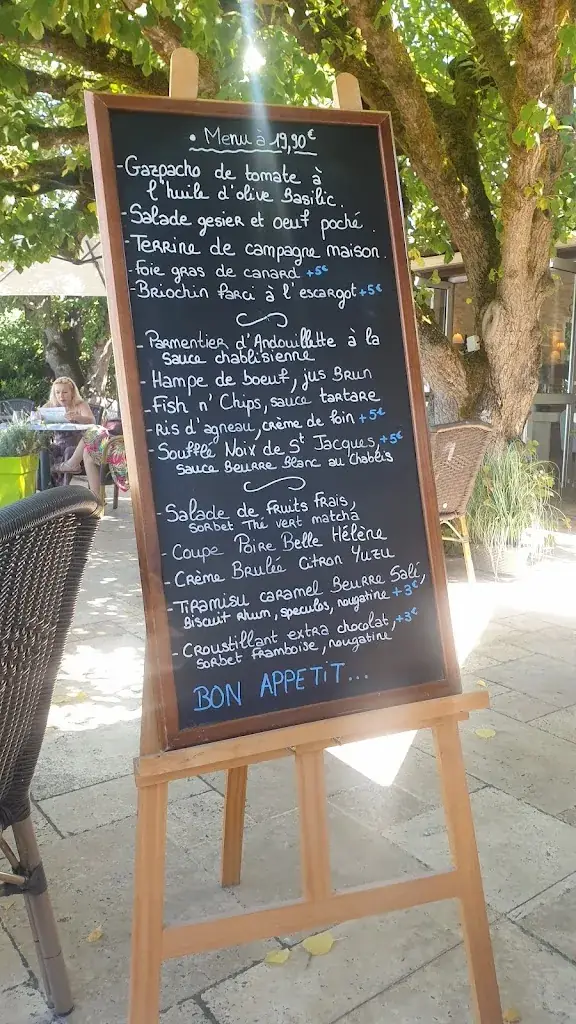 • Menu à 19,90€
- Gazpacho de tomate à
l'huile d'olive Basilic.
- Salade gesier et oeuf poché.
- Terrine de campagne maison.
- Foie gras de canard +5€
- Briochin farci à l'escargot +5€
- Parmentier d'Andouillette à la
sauce chablisienne
- Hampe de boeuf, jus Brun
- Fish n' Chips, sauce tartare
- Ris d'agneau, crème de foin +5€
- Soufflé Noix de St Jacques, +5€
sauce Beurre Blanc au Chablis
- Salade de fruits frais,
sorbet Thé vert matcha
- Coupe Poire Belle Hélène
- Crème Brulée Citron Yuzu
- Tiramisu caramel Beurre Salé,
Biscuit rhum, speculos, nougatine +3€
- Croustillant extra chocolat, +3€
sorbet framboise, nougatine
BON APPETIT...